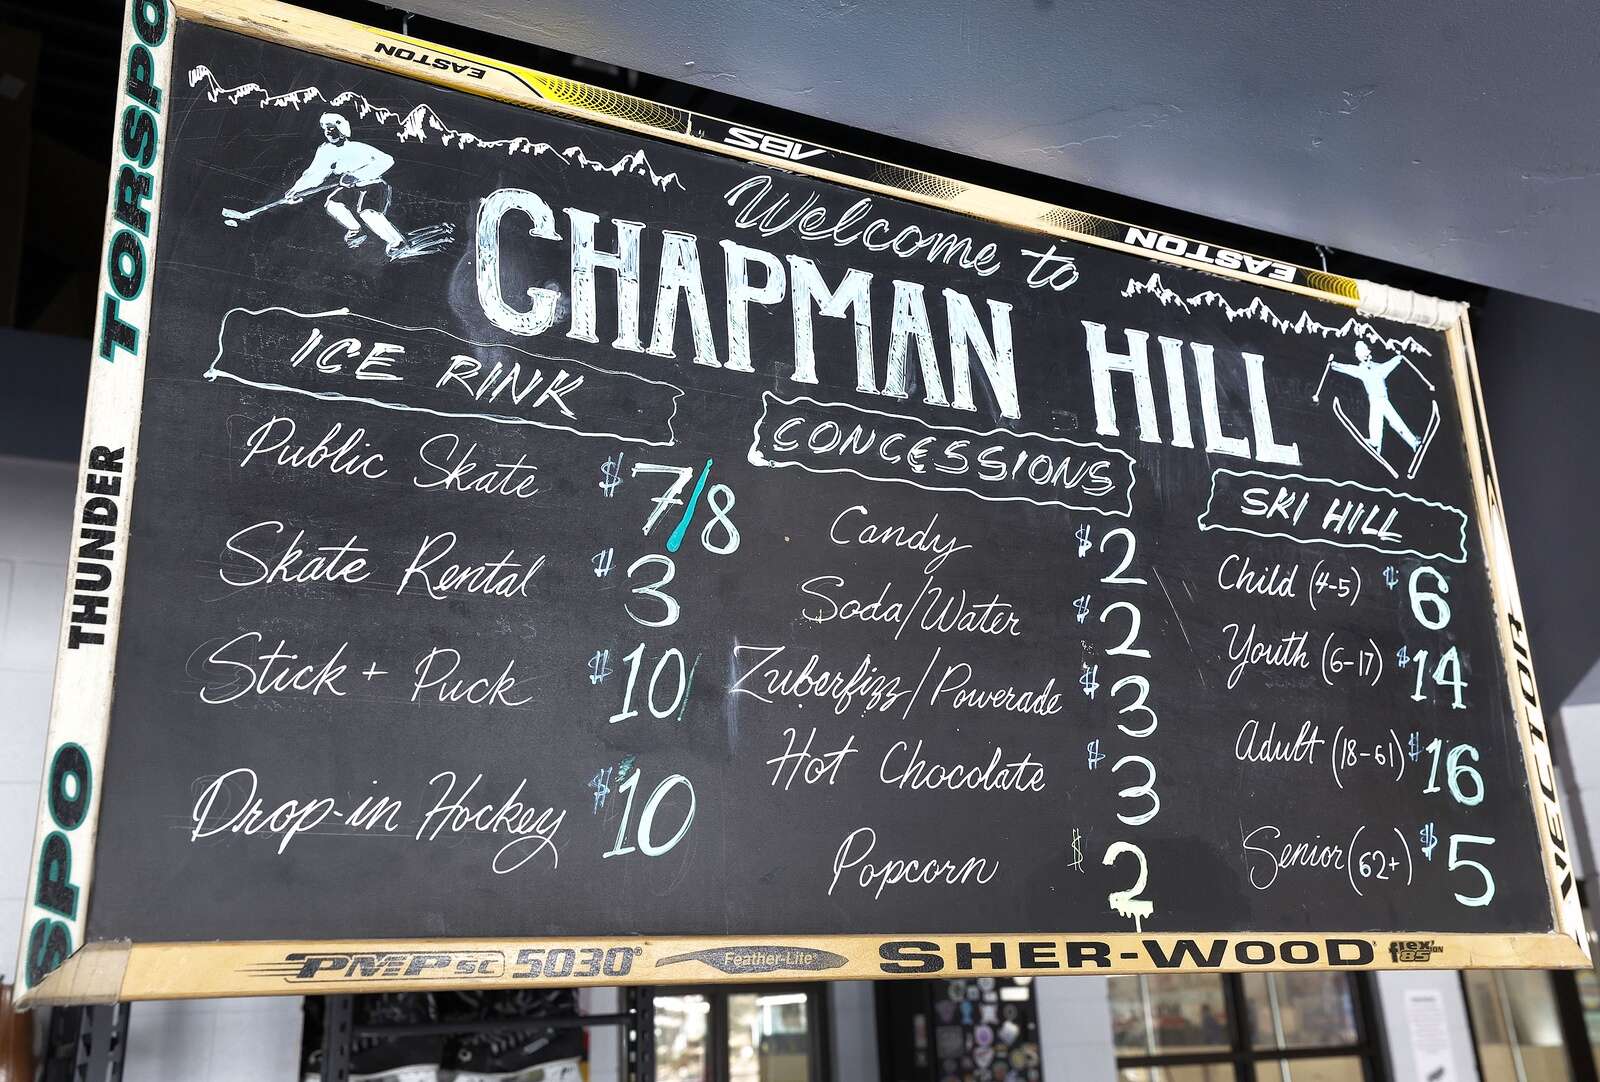 Welcome to
CHAPMAN HILL
ICE RINK
Public Skate $7/8
Skate Rental $3
Stick + Puck $10
Drop-in Hockey $10
CONCESSIONS
Candy $2
Soda/Water $2
Zuberfizz/Powerade $3
Hot Chocolate $3
Popcorn $2
SKI HILL
Child (4-5) $6
Youth (6-17) $14
Adult (18-61) $16
Senior (62+) $5
EASTON
ABS
EASTON
TORSPO
THUNDER
SPO
VECTOR
PMP SC 5030
Feather-Lite
SHER-WOOD
flex 85